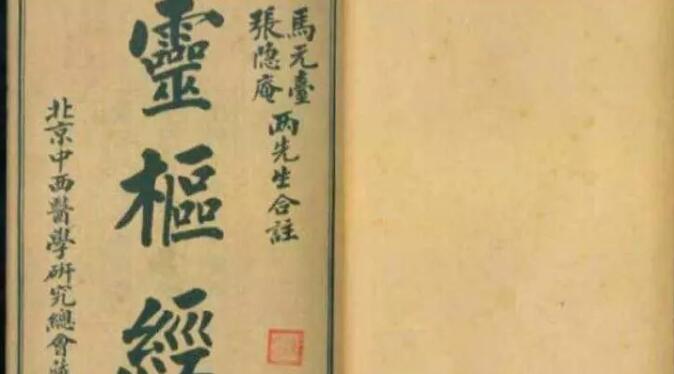 馬元臺
張隐庵
两先生合註
靈樞經
北京中西醫學研究總會